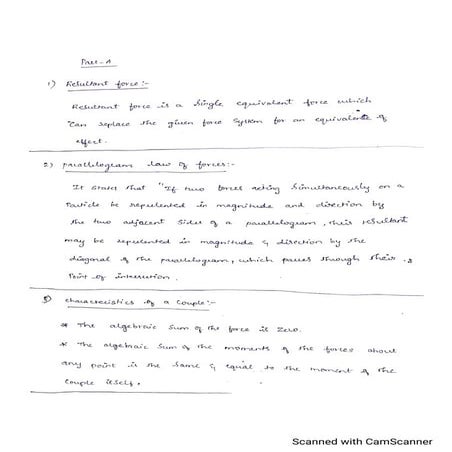 Part-A
1) Resultant force:-
Resultant force is a single equivalent force which
can replace the given force system for an equivalence of
effect.
2) parallelogram law of forces:-
It states that "If two forces acting simultaneously on a
Particle be represented in magnitude and direction by
the two adjacent sides of a parallelogram, their resultant
may be represented in magnitude & direction by the
diagonal of the parallelogram, which passes through their
Point of intersection.
3) characteristics of a couple:-
* The algebraic sum of the force is zero.
* The algebraic sum of the moments of the forces about
any point is the same & equal to the moment of the
couple itself.
Scanned with CamScanner